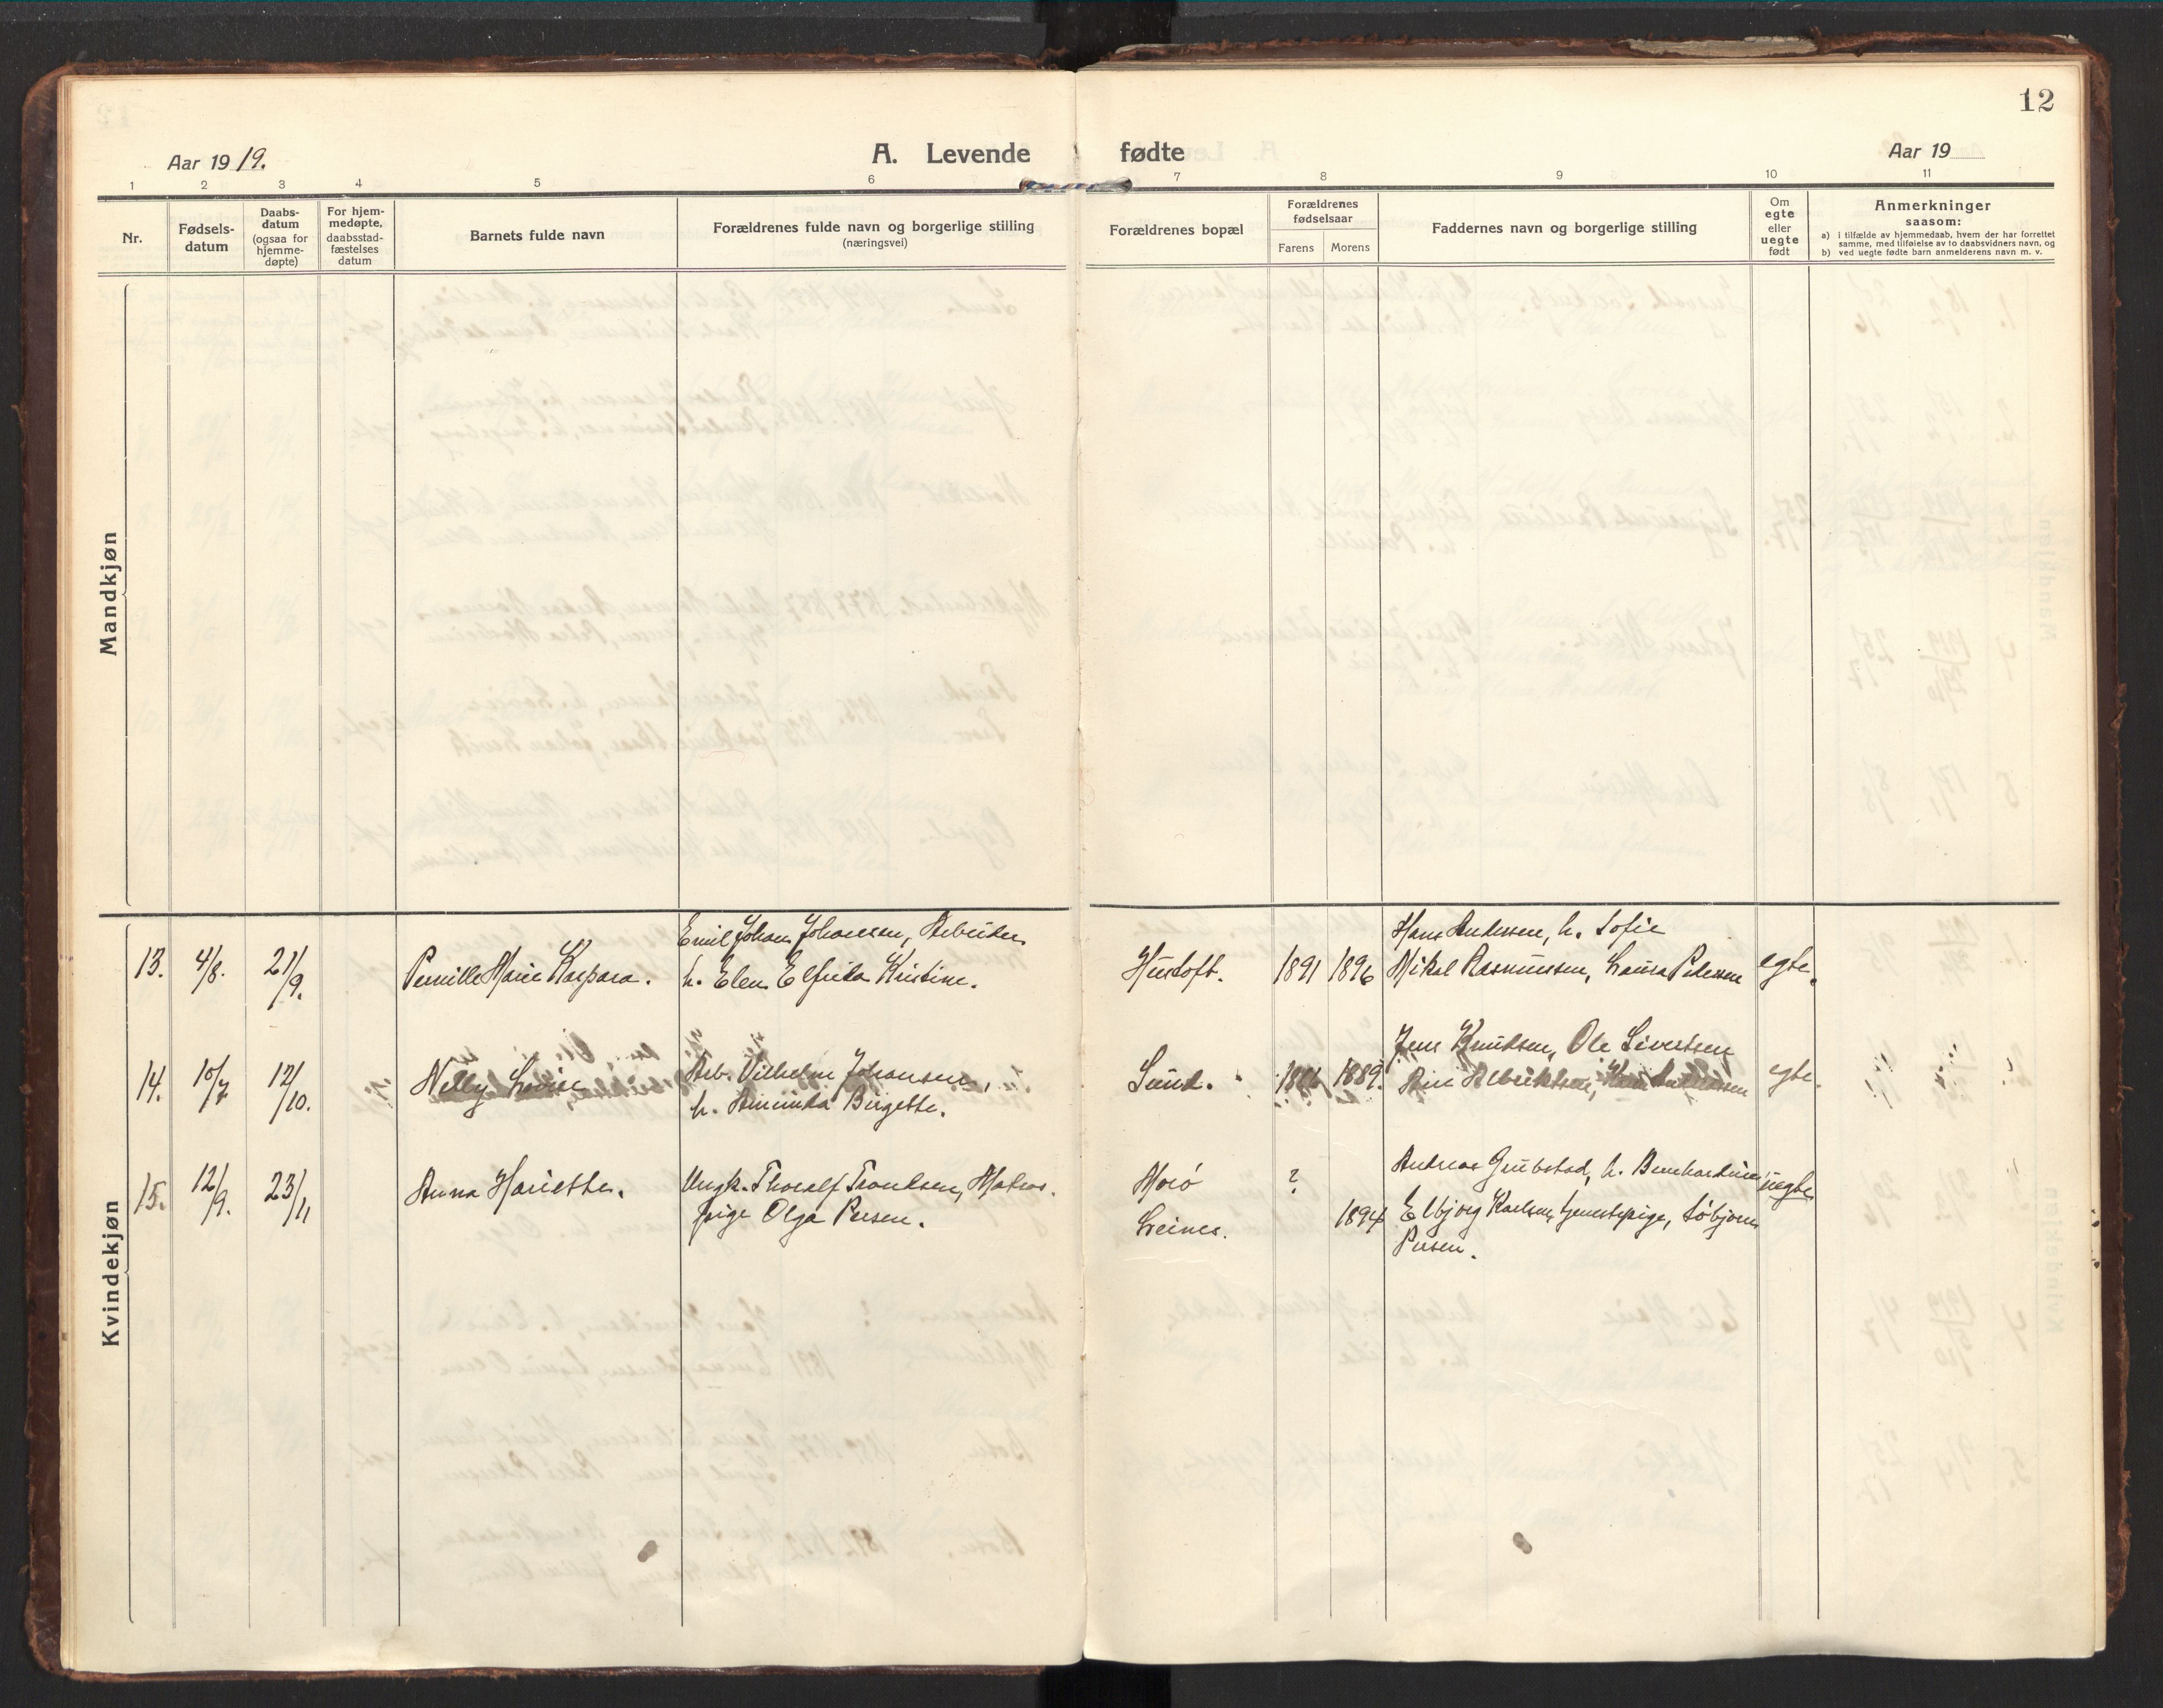 12
Aar 1919.
A. Levende fødte
Aar 19
1 2 3 4 5 6 7 8 9 10 11
Nr.
Fødsels-
datum
Daabs-
datum
(ogsaa for
hjemme-
døpte)
For hjem-
medøpte,
daabsstad-
fæstelses
datum
Barnets fulde navn
Forældrenes fulde navn og borgerlige stilling
(næringsvei)
Forældrenes bopæl
Forældrenes
fødselsaar
Farens Morens
Faddernes navn og borgerlige stilling
Om
egte
eller
uegte
født
Anmerkninger
saasom:
a) i tilfælde av hjemmedaab, hvem der har forrettet
samme, med tilføielse av to daabsvidners navn, og
b) ved uegte fødte barn anmelderens navn m. v.
Mandkjøn
Kvindekjøn
13. 4/8. 21/9. Pernille Marie Kaspara.
Emil Johan Johansen, Arbeider
h. Elen Elfrida Kristine.
Hustoft. 1891 1896
Hans Andersen, h. Sofie
Mikal Rasmussen, Laura Pedersen
egte.
14. 10/7 12/10. Nelly Lovise
Arb. Vilhelm Johansen,
h. Aminda Birgitte.
Sund. 1889.
Jens Knudsen, Ole Sivertsen
Albriktsen,
egte.
15. 12/9. 23/11 Anna Hariette.
Ungk. Thoralf Trondsen, Matros.
pige Olga Persen.
Leines.
? 1894
Andreas Grubstad, h.
Elbjørg Karlsen, tjenestepige,
Persen.
uegte